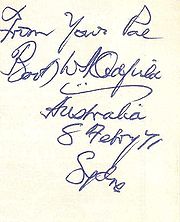 From Your Pal
Bert W Oldfield
Australia
8 Febry 71
Sydney